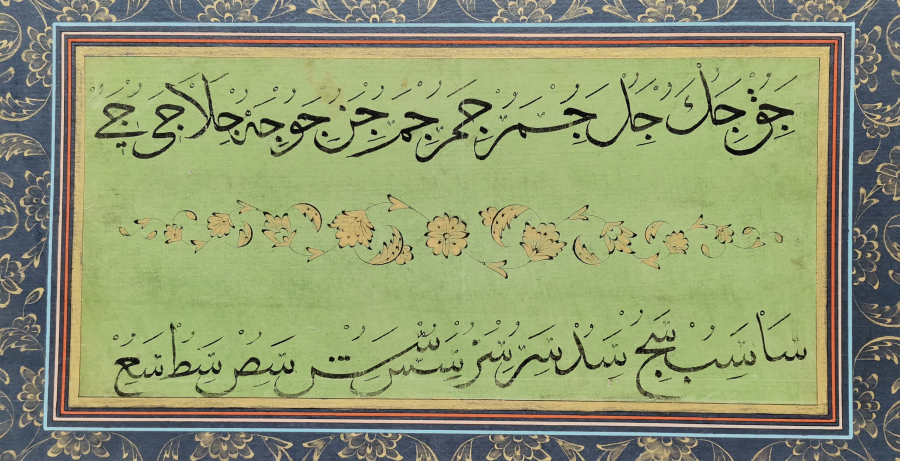 جق جك جل جم جم جم جن جو جه جلا جى جے
سا سب سج سد سر سر سس سص سط سع